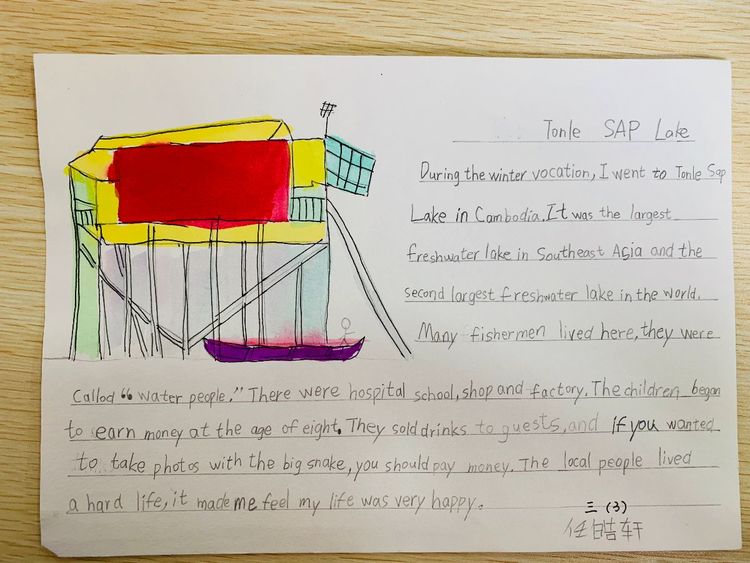 Tonle SAP Lake
During the winter vocation, I went to Tonle Sap
Lake in Cambodia. It was the largest
freshwater lake in Southeast Asia and the
second largest freshwater lake in the world.
Many fishermen lived here, they were
Callod “water people.” There were hospital school, shop and factory. The children began
to earn money at the age of eight. They sold drinks to guests, and if you wanted
to take photos with the big snake, you should pay money. The local people lived
a hard life, it made me feel my life was very happy.
三 (3)
任皓轩